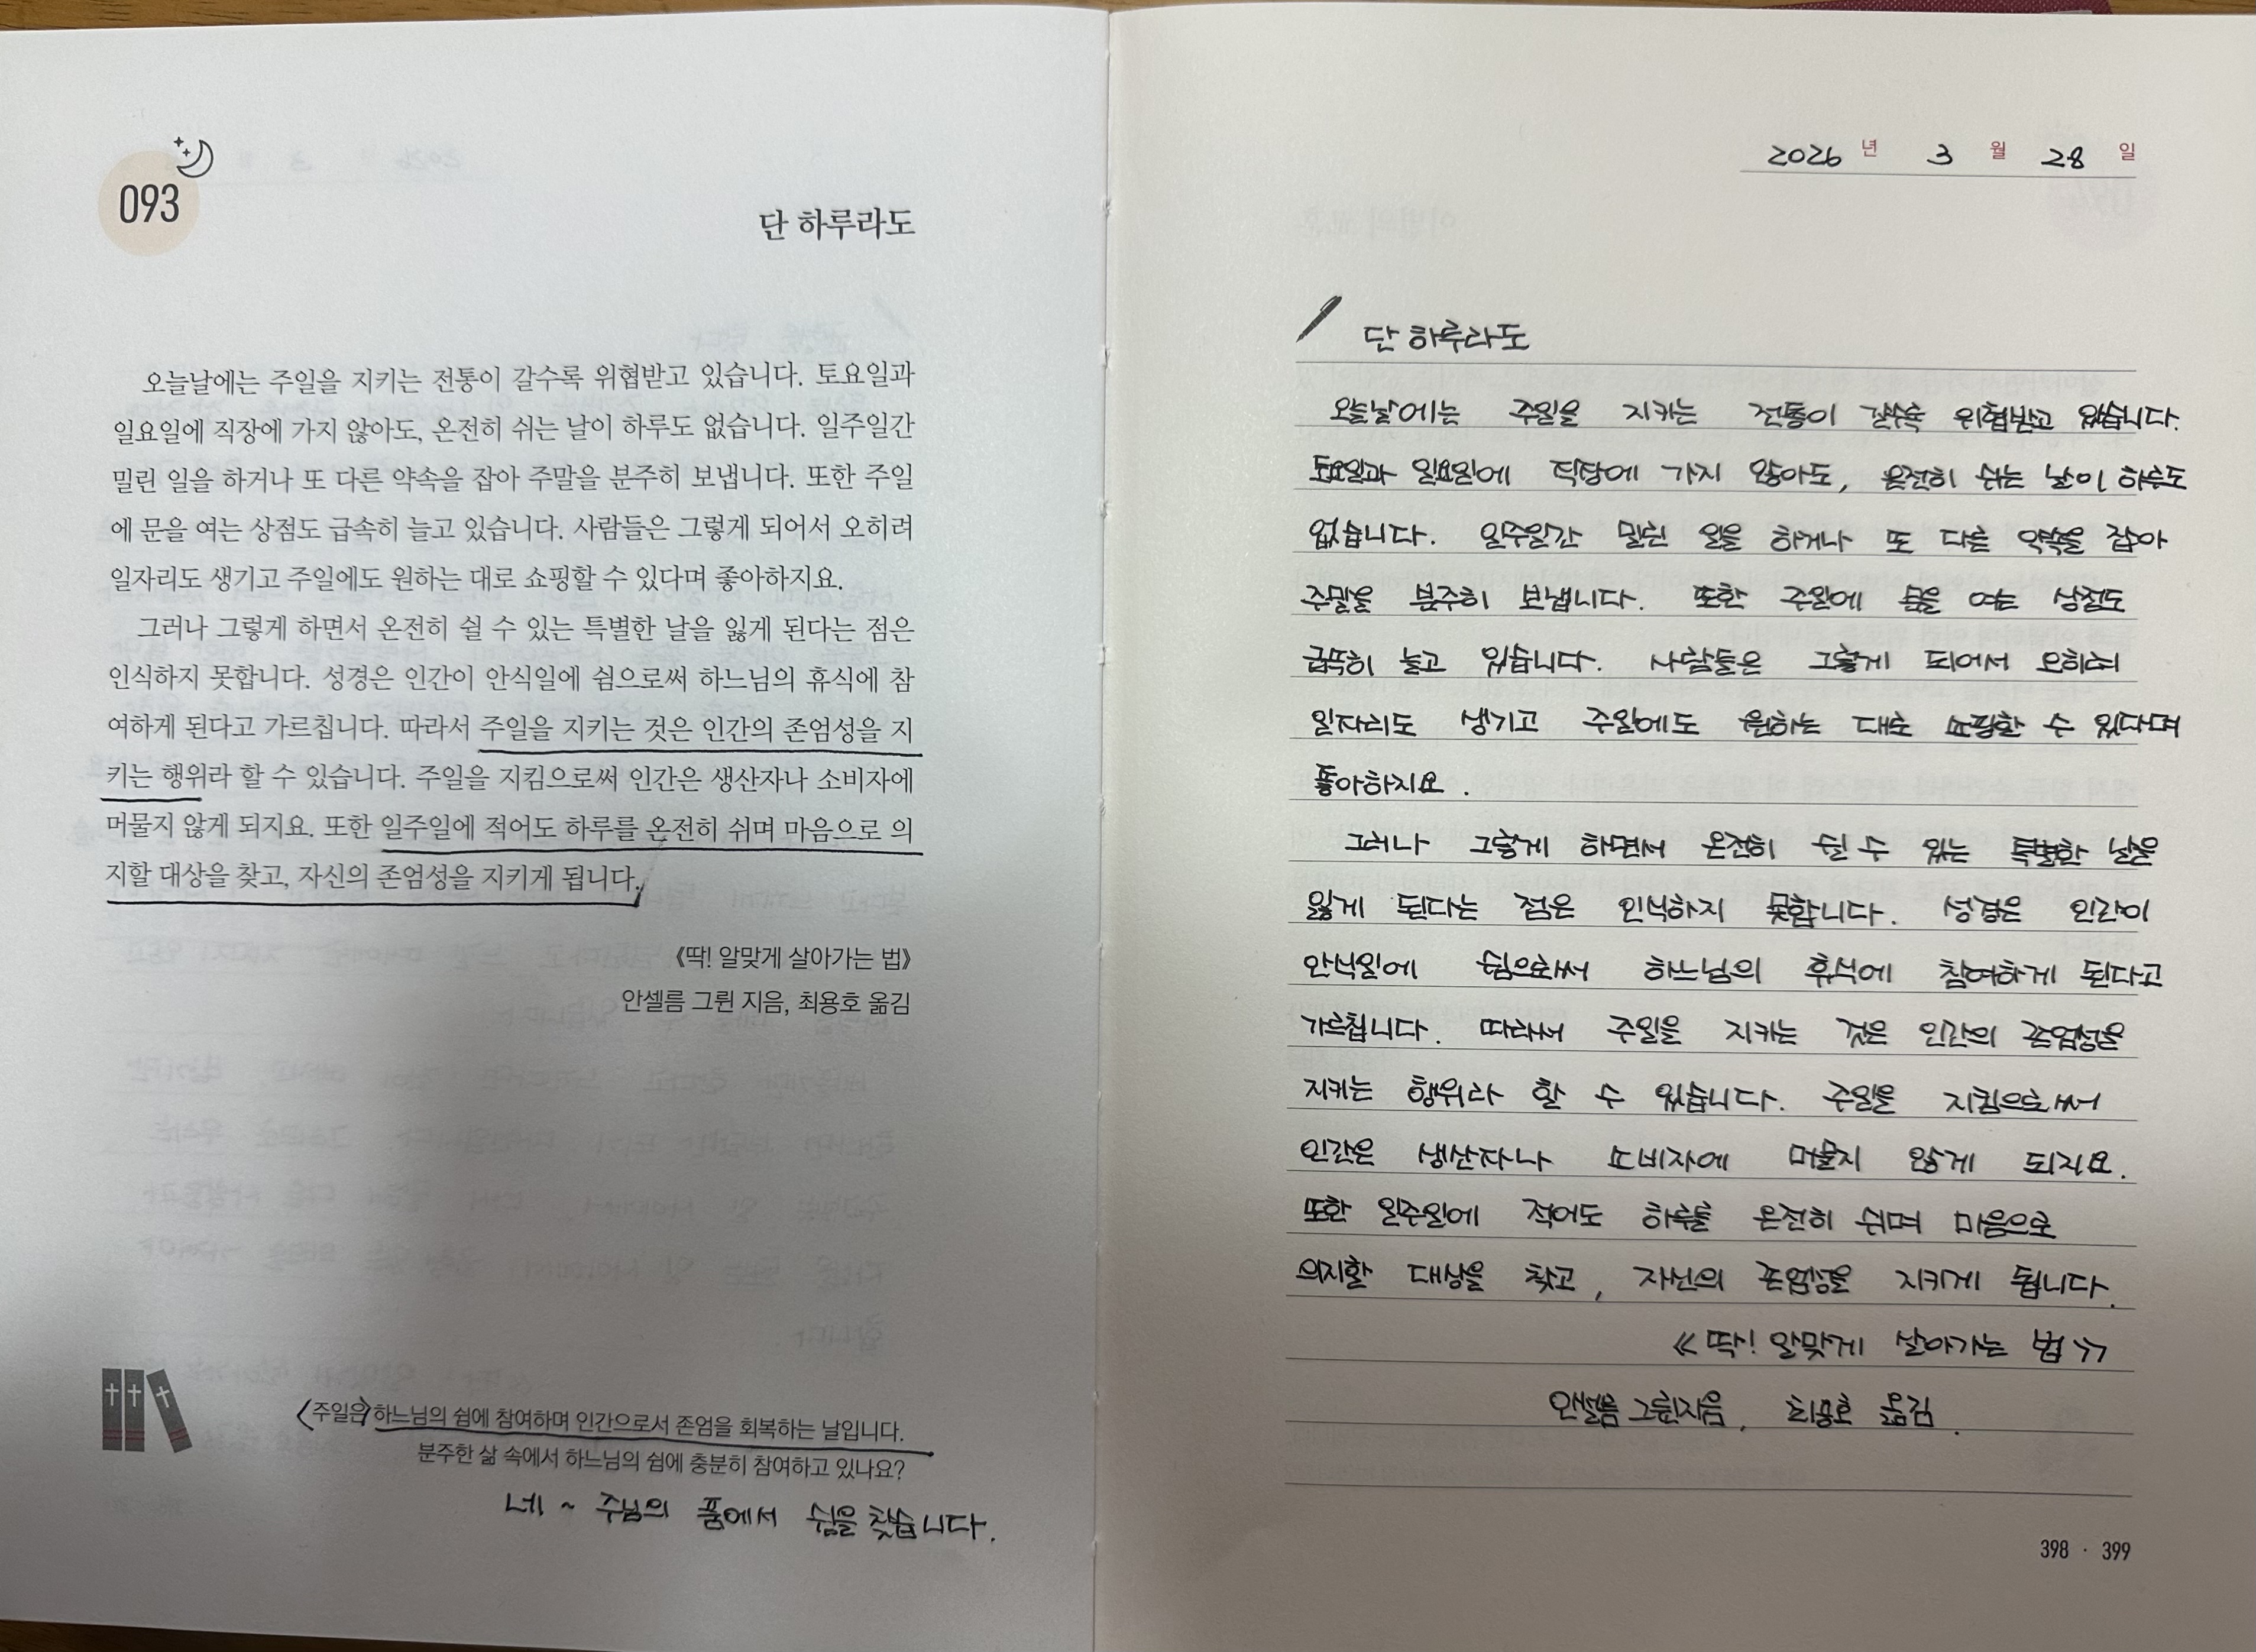 093
단 하루라도
오늘날에는 주일을 지키는 전통이 갈수록 위협받고 있습니다. 토요일과
일요일에 직장에 가지 않아도, 온전히 쉬는 날이 하루도 없습니다. 일주일간
밀린 일을 하거나 또 다른 약속을 잡아 주말을 분주히 보냅니다. 또한 주일
에 문을 여는 상점도 급속히 늘고 있습니다. 사람들은 그렇게 되어서 오히려
일자리도 생기고 주일에도 원하는 대로 쇼핑할 수 있다며 좋아하지요.
그러나 그렇게 하면서 온전히 쉴 수 있는 특별한 날을 잃게 된다는 점은
인식하지 못합니다. 성경은 인간이 안식일에 쉼으로써 하느님의 휴식에 참
여하게 된다고 가르칩니다. 따라서 주일을 지키는 것은 인간의 존엄성을 지
키는 행위라 할 수 있습니다. 주일을 지킴으로써 인간은 생산자나 소비자에
머물지 않게 되지요. 또한 일주일에 적어도 하루를 온전히 쉬며 마음으로 의
지할 대상을 찾고, 자신의 존엄성을 지키게 됩니다.
《딱! 알맞게 살아가는 법》
안셀름 그륀 지음, 최용호 옮김
주일은 하느님의 쉼에 참여하며 인간으로서 존엄을 회복하는 날입니다.
분주한 삶 속에서 하느님의 쉼에 충분히 참여하고 있나요?
네 ~ 주님의 품에서 쉼을 찾습니다.
2026 년 3 월 28 일
단 하루라도
오늘날에는 주일을 지키는 전통이 갈수록 위협받고 있습니다.
토요일과 일요일에 직장에 가지 않아도, 온전히 쉬는 날이 하루도
없습니다. 일주일간 밀린 일을 하거나 또 다른 약속을 잡아
주말을 분주히 보냅니다. 또한 주일에 문을 여는 상점도
급속히 늘고 있습니다. 사람들은 그렇게 되어서 오히려
일자리도 생기고 주일에도 원하는 대로 쇼핑할 수 있다며
좋아하지요.
그러나 그렇게 하면서 온전히 쉴 수 있는 특별한 날을
잃게 된다는 점은 인식하지 못합니다. 성경은 인간이
안식일에 쉼으로써 하느님의 휴식에 참여하게 된다고
가르칩니다. 따라서 주일을 지키는 것은 인간의 존엄성을
지키는 행위라 할 수 있습니다. 주일을 지킴으로써
인간은 생산자나 소비자에 머물지 않게 되지요.
또한 일주일에 적어도 하루를 온전히 쉬며 마음으로
의지할 대상을 찾고, 자신의 존엄성을 지키게 됩니다.
《딱! 알맞게 살아가는 법》
안셀름 그륀지음, 최용호 옮김.
398 · 399